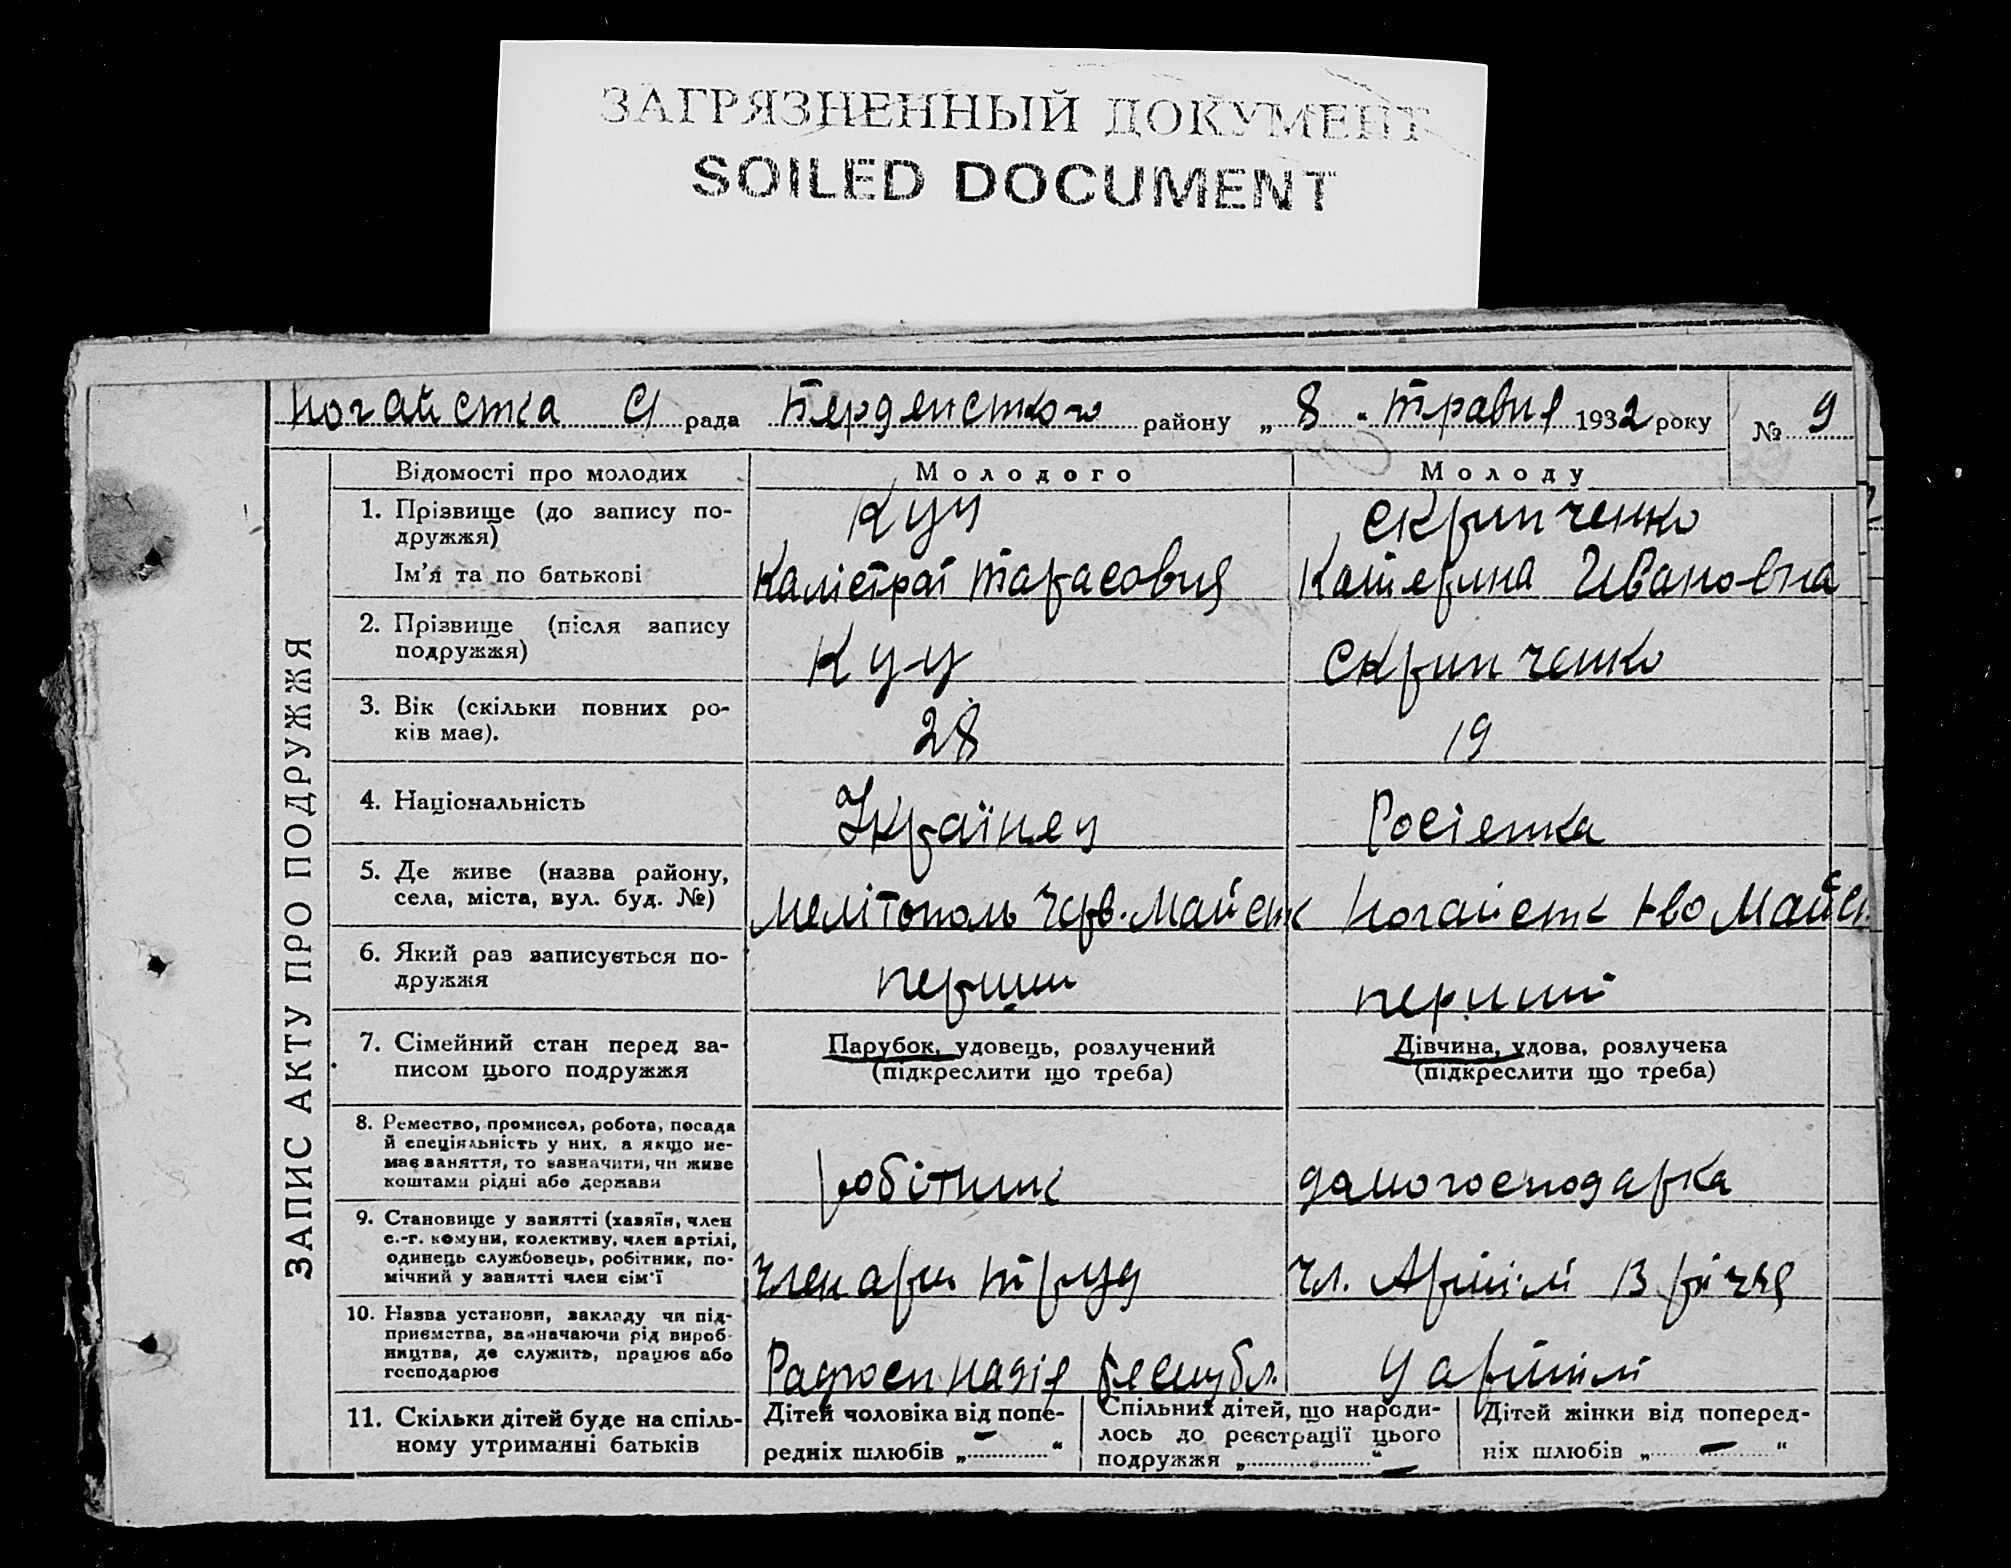 ЗАГРЯЗНЕННЫЙ ДОКУМЕНТ
SOILED DOCUMENT
Ногайська С/ рада Бердянського району „ 8 “ травня 1932 року № 9
ЗАПИС АКТУ ПРО ПОДРУЖЖЯ
Відомості про молодих Молодого Молоду
1. Прізвище (до запису по-
дружжя) Куц Скрипченко
Ім’я та по батькові Калістрат Тарасович Катерина Ивановна
2. Прізвище (після запису
подружжя) Куц Скрипченко
3. Вік (скільки повних ро-
ків має). 28 19
4. Національність Українец Росіенка
5. Де живе (назва району,
села, міста, вул. буд. №) Мелітополь Черв. Майськ Ногайськ
6. Який раз записується по-
дружжя перший перший
7. Сімейний стан перед за-
писом цього подружжя
Парубок, удовець, розлучений
(підкреслити що треба)
Дівчина, удова, розлучена
(підкреслити що треба)
8. Ремество, промисел, робота, посада
й спеціяльність у них, а якщо не-
має заняття, то зазначити, чи живе
коштами рідні або держави робітник домогосподарка
9. Становище у занятті (хазяїн, член
с.-г. комуни, колективу, член артілі,
одинець службовець, робітник, по-
мічний у занятті член сім’ї член арт. труд чл. Артілі 13 річчя
10. Назва установи, закладу чи під-
приємства, зазначаючи рід вироб-
ництва, де служить, працює або
господарює у артілі
11. Скільки дітей буде на спіль-
ному утриманні батьків
Дітей чоловіка від попе-
редніх шлюбів „ – “
Спільних дітей, що народи-
лось до реєстрації цього
подружжя „ “ –
Дітей жінки від поперед-
ніх шлюбів „ – “